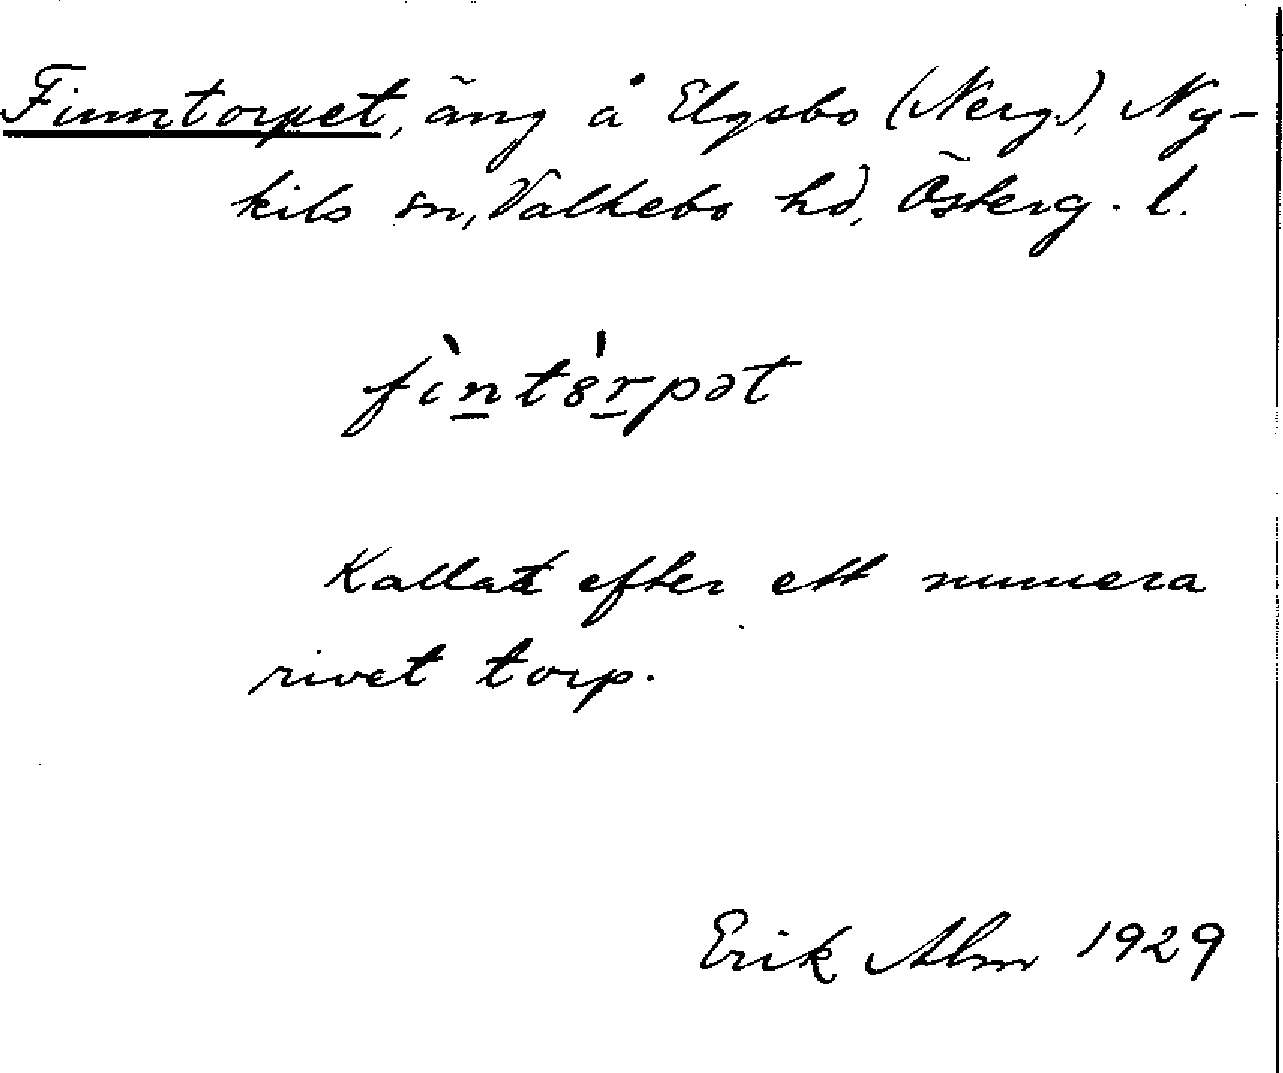 Finntorpet, äng å Elgsbo (Nerg.), Ny-
kils sn, Valkebo hd, Österg. l.
fìnt8́rpət
Kallat efter ett numera
rivet torp.
Erik Alm 1929